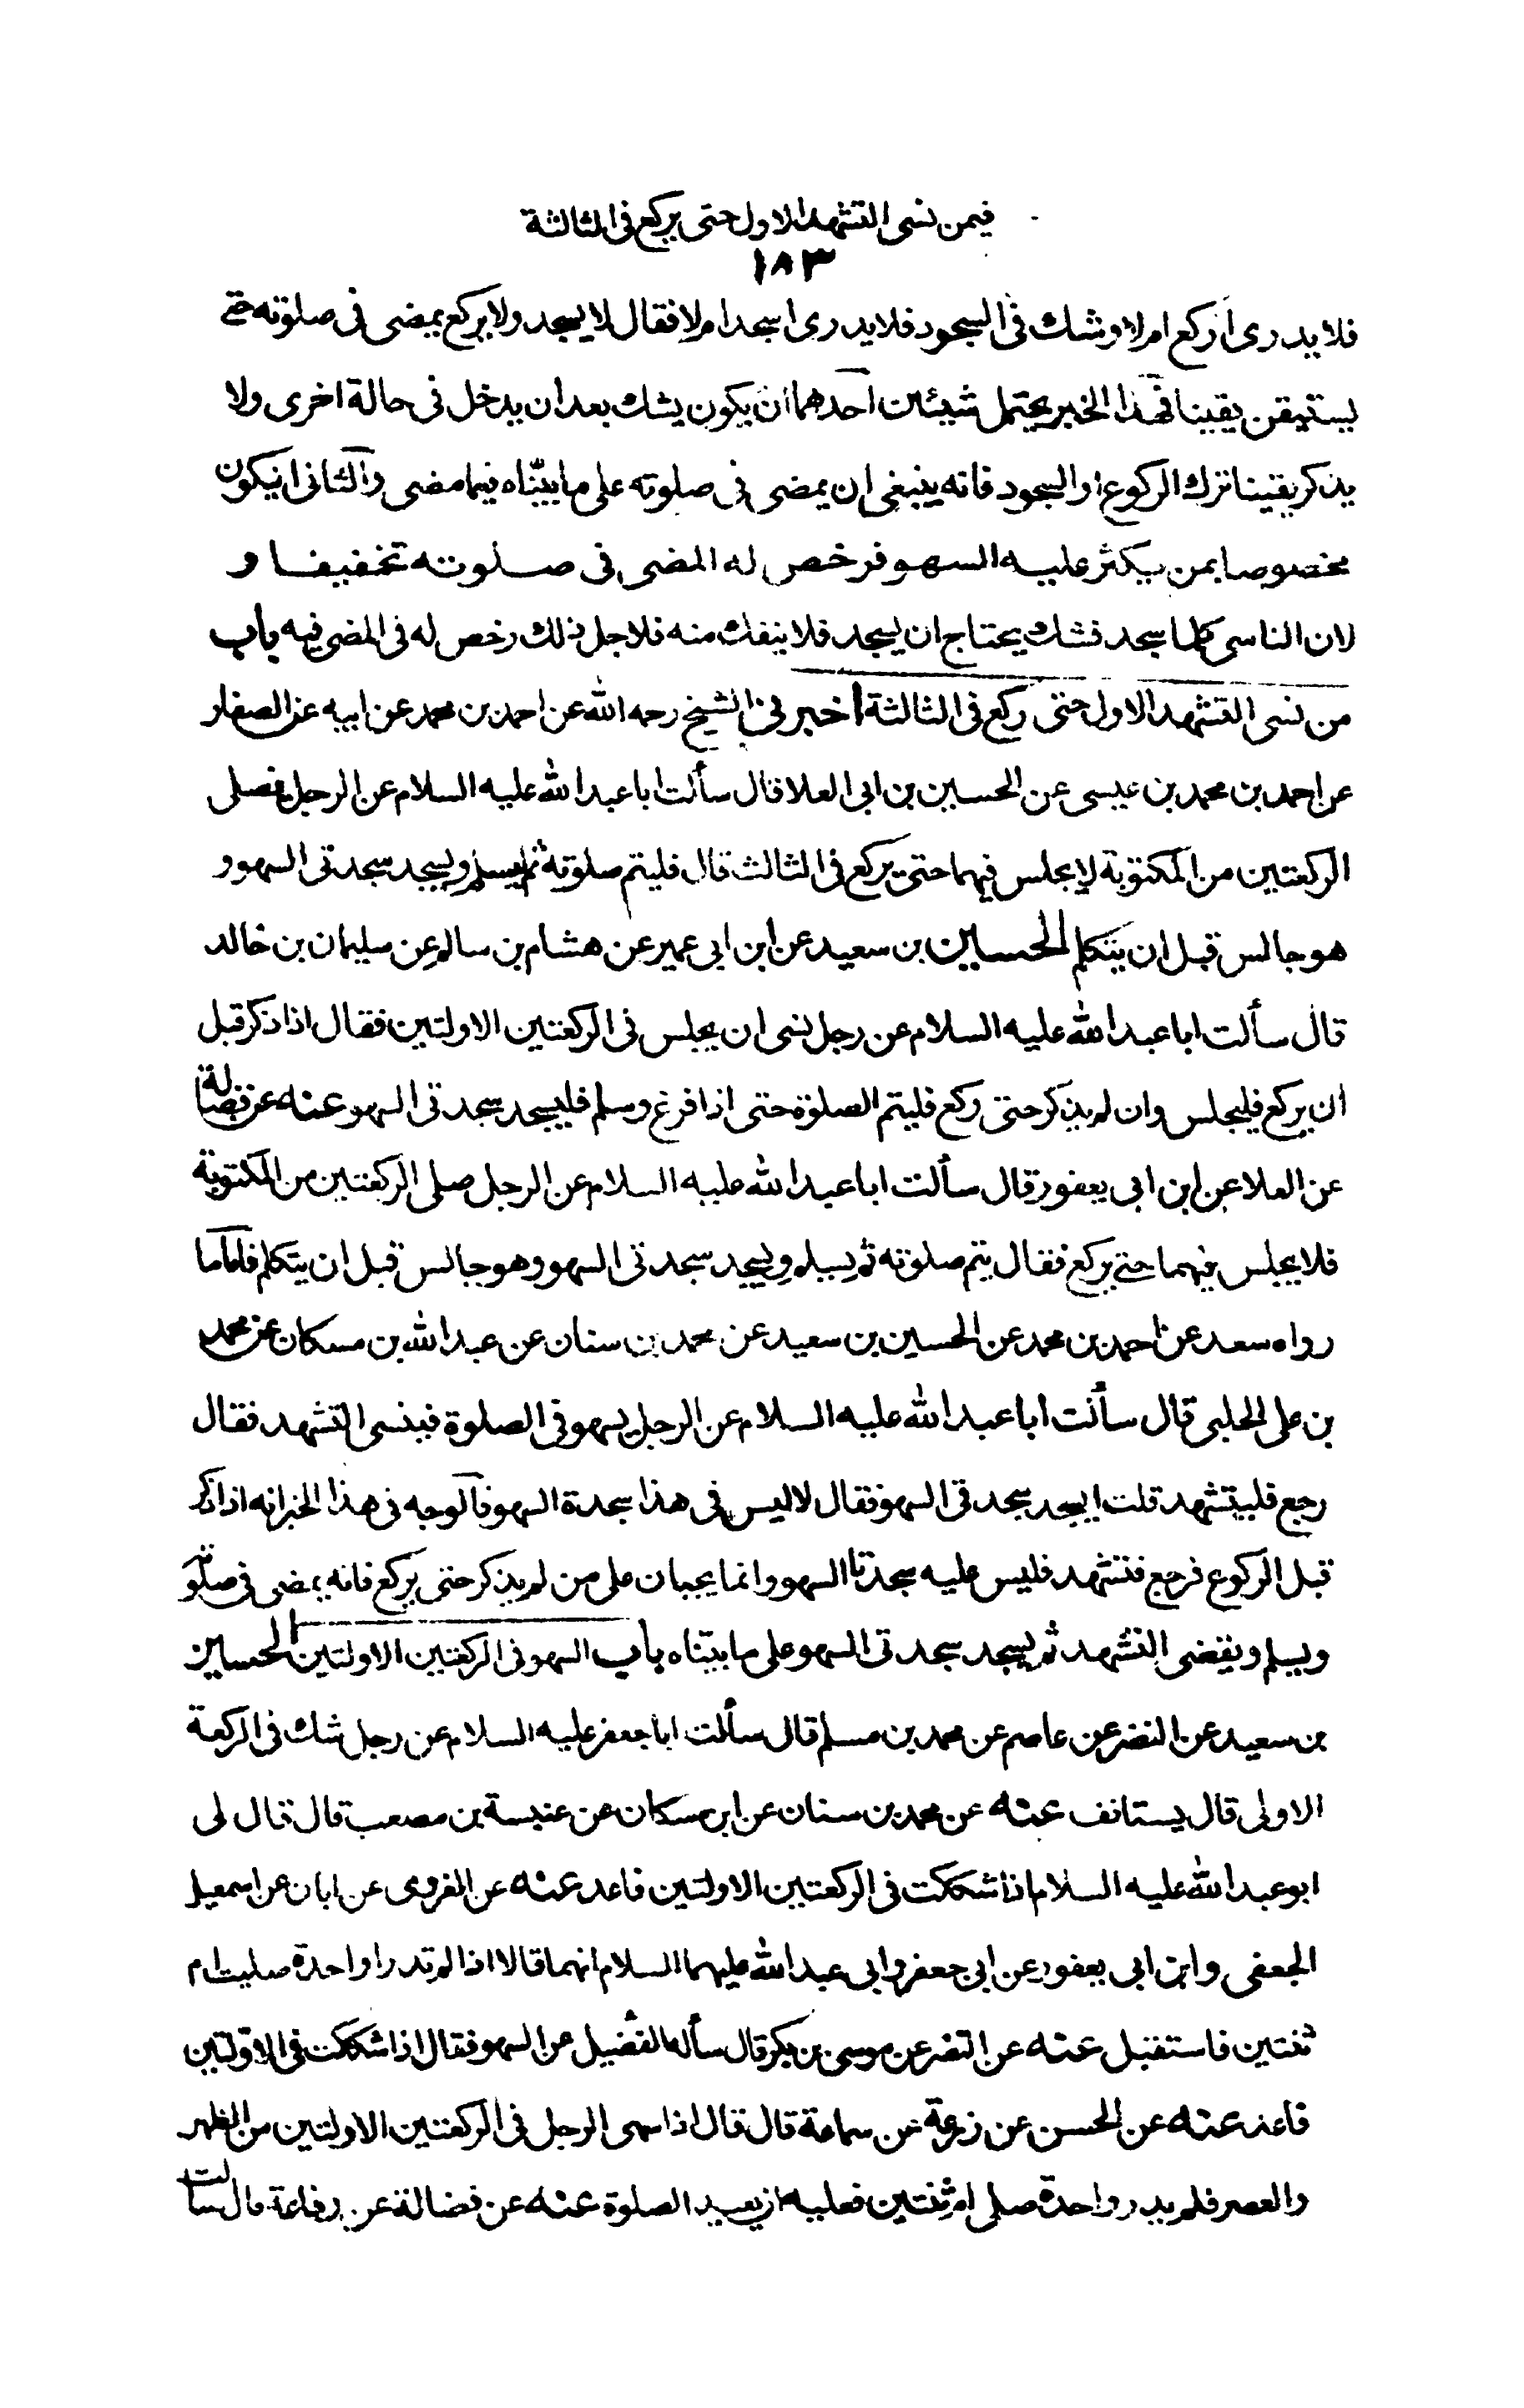 فيمن نسى التشهد الاول حتى يركع فى الثالثة
١٨٣
فلا يدرى أركع ام لا وشك فى السجود فلا يدرى اسجد ام لا فقال لا يسجد ولا يركع يمضى فى صلوته حتى
يستيقن يقينا فهذا الخبر يحتمل شيئين احدهما ان يكون يشك بعد ان يدخل فى حالة اخرى ولا
يذكر يقينا ترك الركوع او السجود فانه ينبغى ان يمضى فى صلوته على ما بيّناه فيما مضى والثانى ان يكون
مخصوصا بمن يكثر عليه السهو فرخص له المضى فى صلوته تخفيفا و
لان الناسى كلما سجد فشك يحتاج ان يسجد فلا ينفك منه فلاجل ذلك رخص له فى المضى فيه باب
من نسى التشهد الاول حتى ركع فى الثالثة اخبرنى الشيخ رحمه الله عن احمد بن محمد عن ابيه عن الصفار
عن احمد بن محمد بن عيسى عن الحسين بن ابى العلا قال سألت ابا عبد الله عليه السلام عن الرجل يصلى
الركعتين من المكتوبة لا يجلس فيهما حتى يركع فى الثالث قال فليتم صلوته ثم يسلم ويسجد سجدتى السهو و
هو جالس قبل ان يتكلم الحسين بن سعيد عن ابن ابى عمير عن هشام بن سالم عن سليمان بن خالد
قال سألت ابا عبد الله عليه السلام عن رجل نسى ان يجلس فى الركعتين الاولتين فقال اذا ذكر قبل
ان يركع فليجلس وان لم يذكر حتى ركع فليتم الصلوة حتى اذا فرغ وسلم فليسجد سجدتى السهو عنه عن فضالة
عن العلا عن ابن ابى يعفور قال سألت ابا عبد الله عليه السلام عن الرجل صلى الركعتين من المكتوبة
فلا يجلس فيهما حتى يركع فقال يتم صلوته ثم يسلم ويسجد سجدتى السهو وهو جالس قبل ان يتكلم فاما ما
رواه سعد عن احمد بن محمد عن الحسين بن سعيد عن محمد بن سنان عن عبد الله بن مسكان عن محمد
بن على الحلبى قال سألت ابا عبد الله عليه السلام عن الرجل يسهو فى الصلوة فينسى التشهد فقال
رجع فليتشهد قلت ايسجد سجدتى السهو فقال لا ليس فى هذا سجدة السهو فالوجه فى هذا الخبر انه اذا ذكر
قبل الركوع فرجع فتشهد فليس عليه سجدتا السهو وانما يجبان على من لم يذكر حتى يركع فانه يمضى فى صلوته
ويسلم ويقضى التشهد ثم يسجد سجدتى السهو على ما بيّناه باب السهو فى الركعتين الاولتين الحسين
بن سعيد عن النضر عن عاصم عن محمد بن مسلم قال سألت ابا جعفر عليه السلام عن رجل شك فى الركعة
الاولى قال يستانف عنه عن محمد بن سنان عن ابن مسكان عن عنبسة بن مصعب قال قال لى
ابو عبد الله عليه السلام اذا شككت فى الركعتين الاولتين فاعد عنه عن الفروى عن ابان عن اسمعيل
الجعفى وابن ابى يعفور عن ابى جعفر وابى عبد الله عليهما السلام انهما قالا اذا لم تدر اواحدة صليت ام
ثنتين فاستقبل عنه عن النضر عن موسى بن بكر قال سأله الفضيل عن السهو فقال اذا شككت فى الاوّلتين
فاعد عنه عن الحسن عن زرعة عن سماعة قال قال اذا سهى الرجل فى الركعتين الاولتين من الظهر
والعصر فلم يدر واحدة صلى ام ثنتين فعليه ان يعيد الصلوة عنه عن فضالة عن رفاعة قال سألت